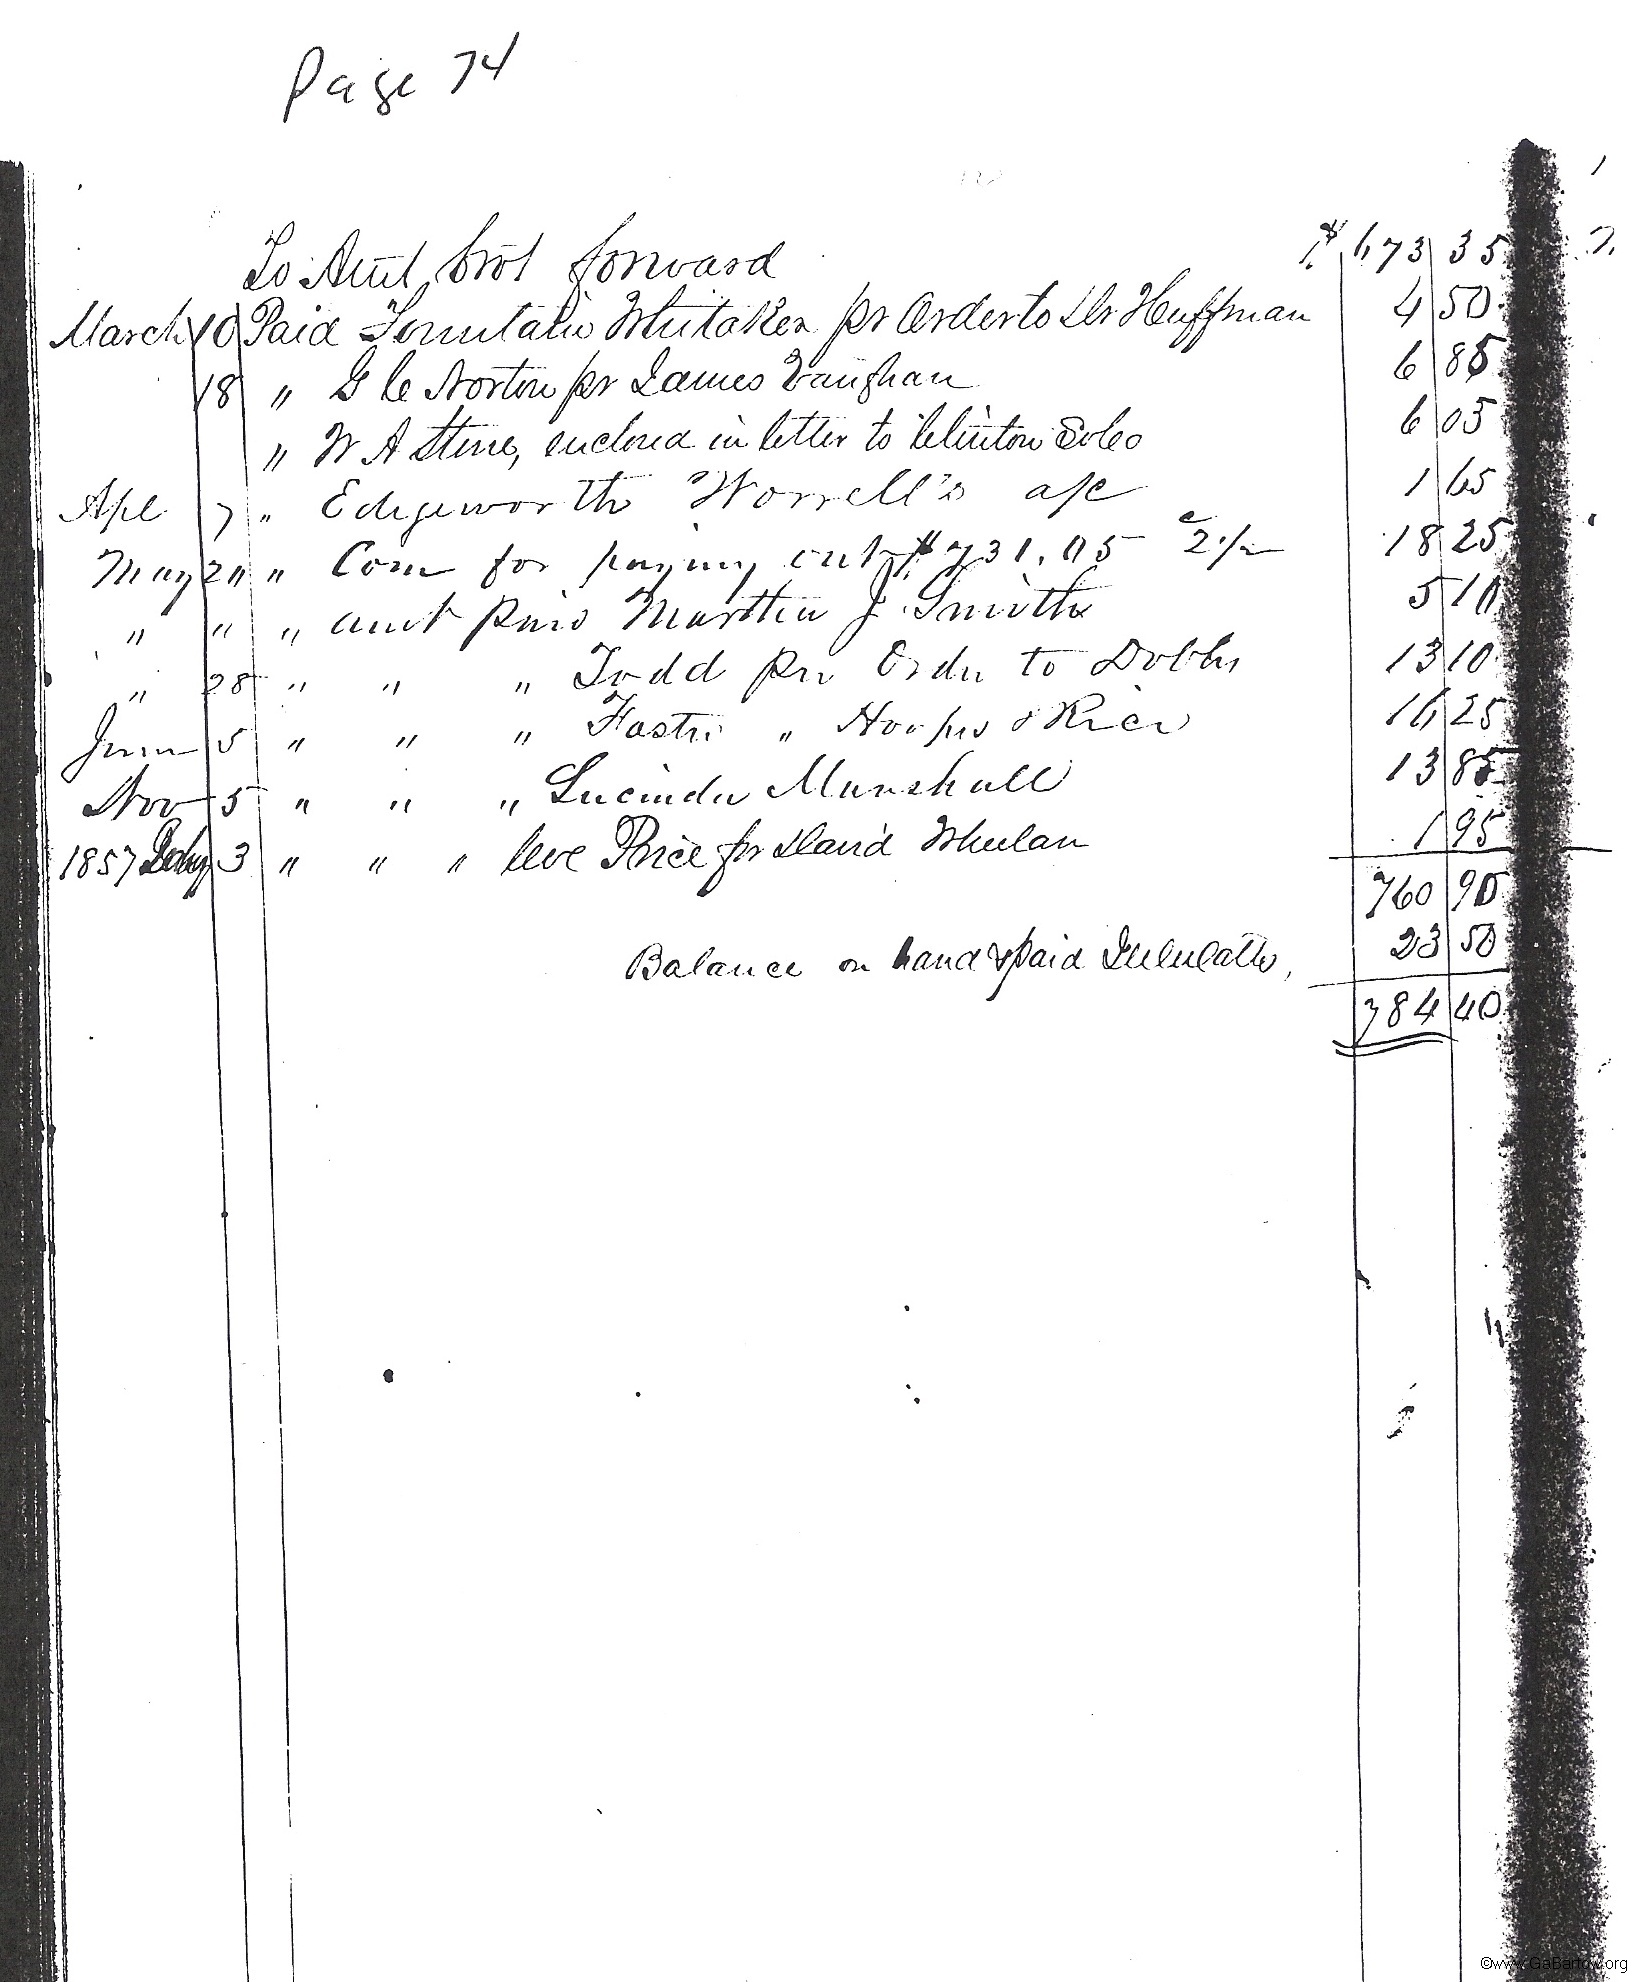 Page 74
To Amt brot forward $ 673 35
March 10 Paid Fountain Whitaker pr Order to Dr Huffman 4 50
18 " G C Norton pr James Vaughan 6 85
" W A Stone, enclosed in letter to Clinton 6 05
Apl 7 " Edgeworth Worrell's a/c 1 65
May 20 " Com for paying out $731.05 2½ 18 25
" " " amt paid Martha J. Smith 5 10
" 28 " " " Todd per Order to Dobbs 13 10
June 5 " " " Foster " Hooper & Rice 16 25
Nov 5 " " " Lucinda Marshall 13 85
1857 3 " " " Price for David Whelan 1 95
760 90
Balance on hand & paid 23 50
784 40
©www.GaBartow.org